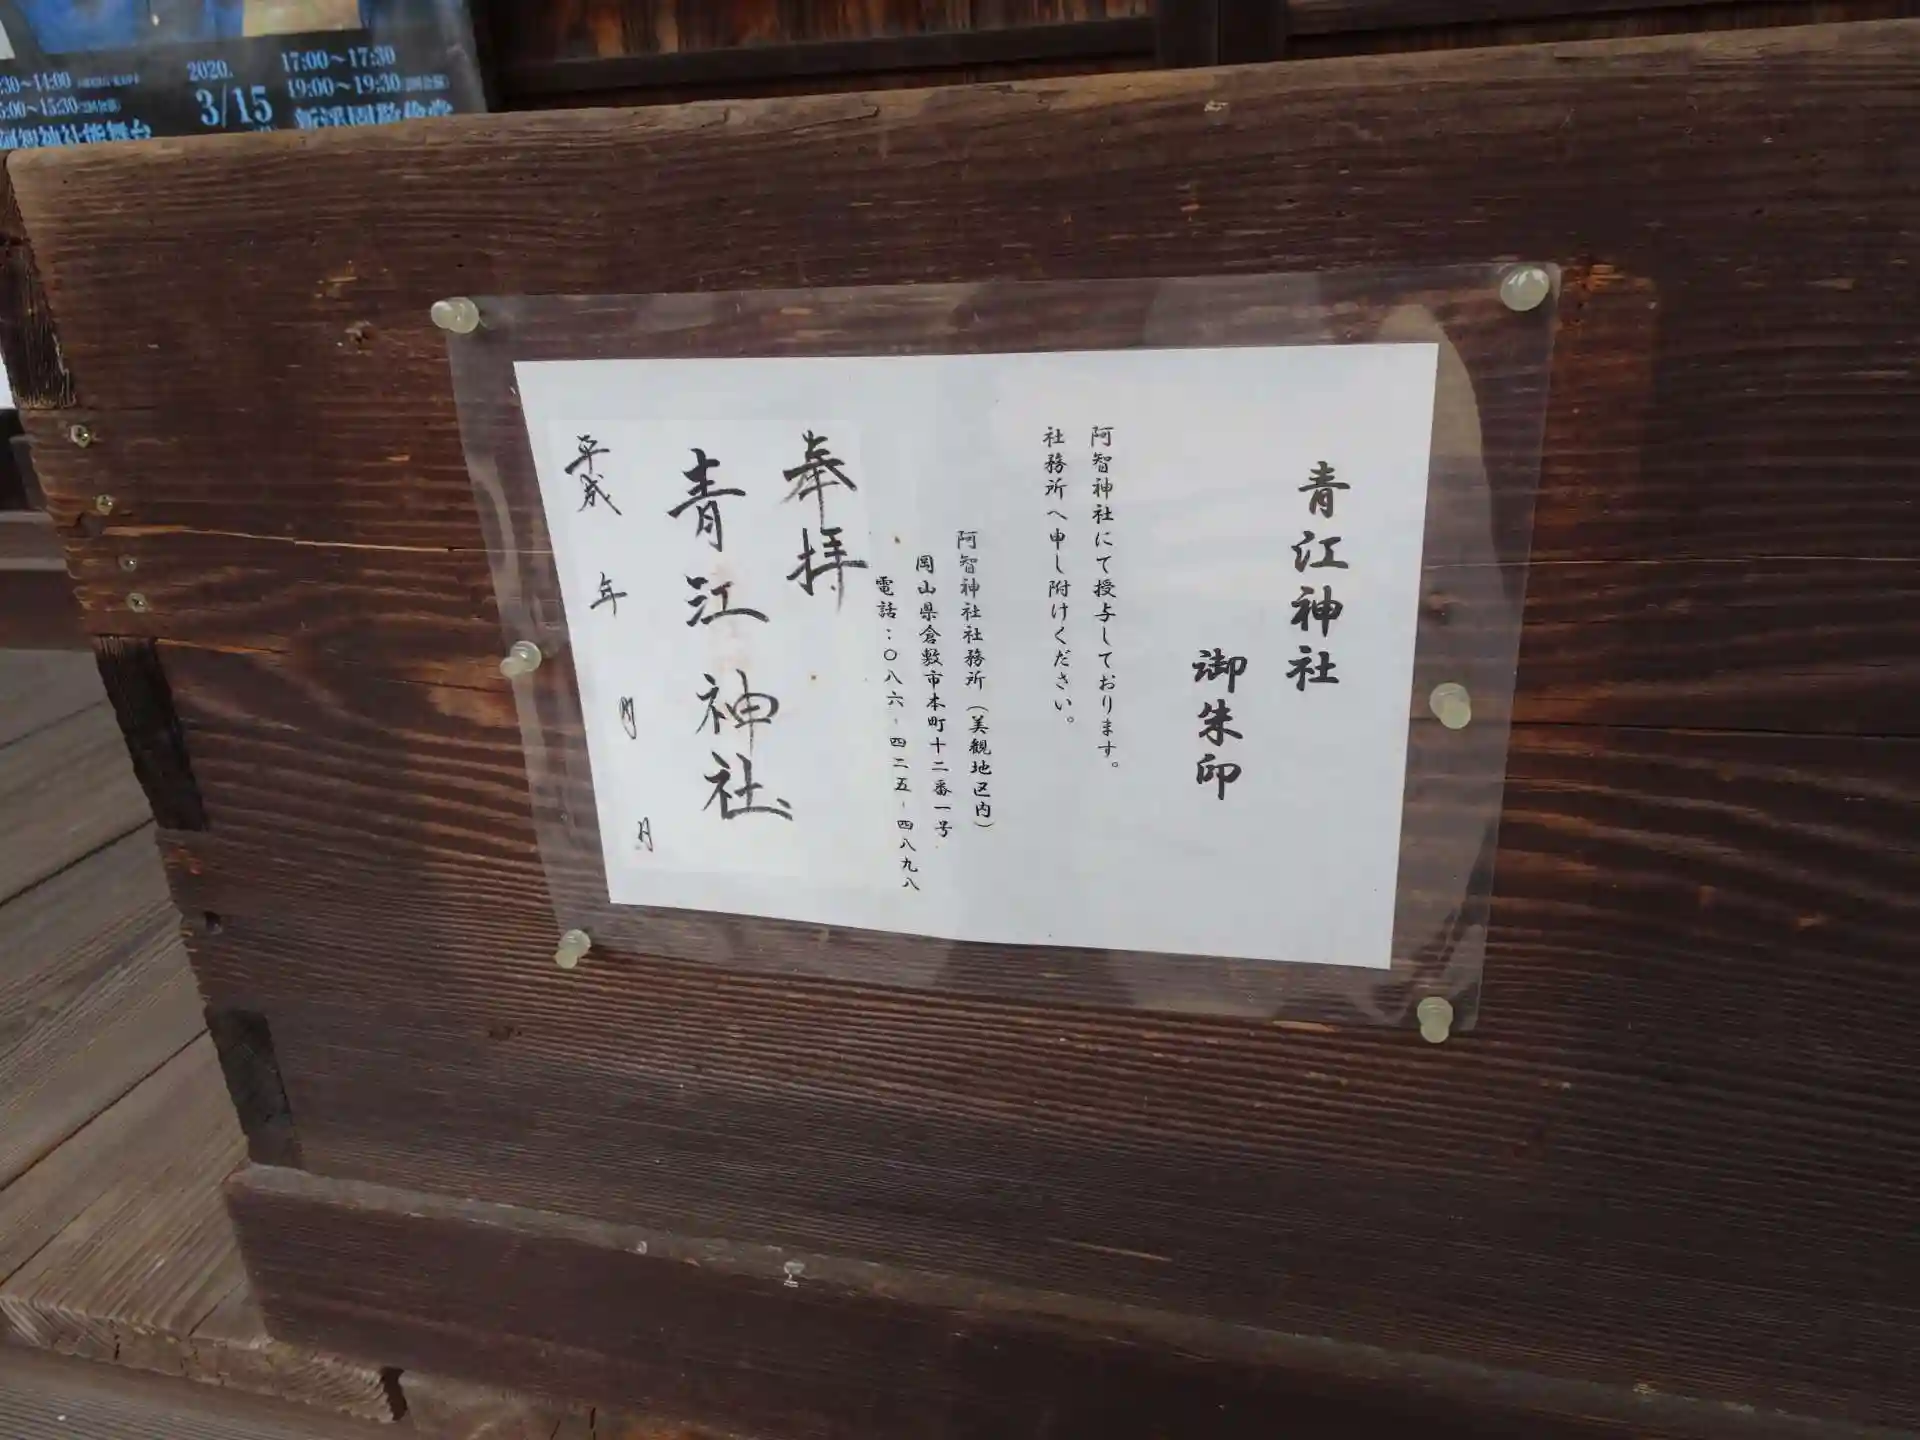 2020.
3/15
17:00〜17:30
19:00〜19:30
青江神社
御朱印
阿智神社にて授与しております。
社務所へ申し附けください。
阿智神社社務所(美観地区内)
岡山県倉敷市本町十二番一号
電話:〇八六-四二五-四八九八
奉拝
青江神社
平成 年 月 日